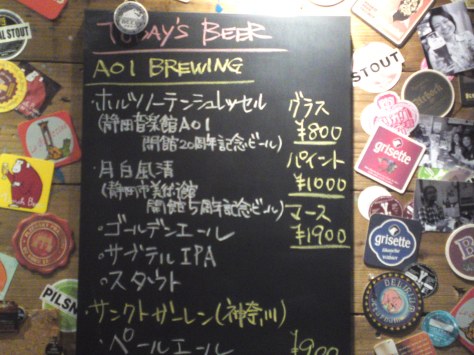 TODAY'S BEER
AOI BREWING
・ホルツノーテンシュレッセル
(静岡音楽館AOI
開館20周年記念ビール)
グラス
¥800
・月白風清
(静岡市美術館
開館5周年記念ビール)
パイント
¥1000
・ゴールデンエール
・サブテルIPA
・スタウト
マース
¥1900
・サンクトガーレン(神奈川)
・ペールエール
¥900
STOUT
STOUT
grisette
grisette
PILSN
DELIRIUM